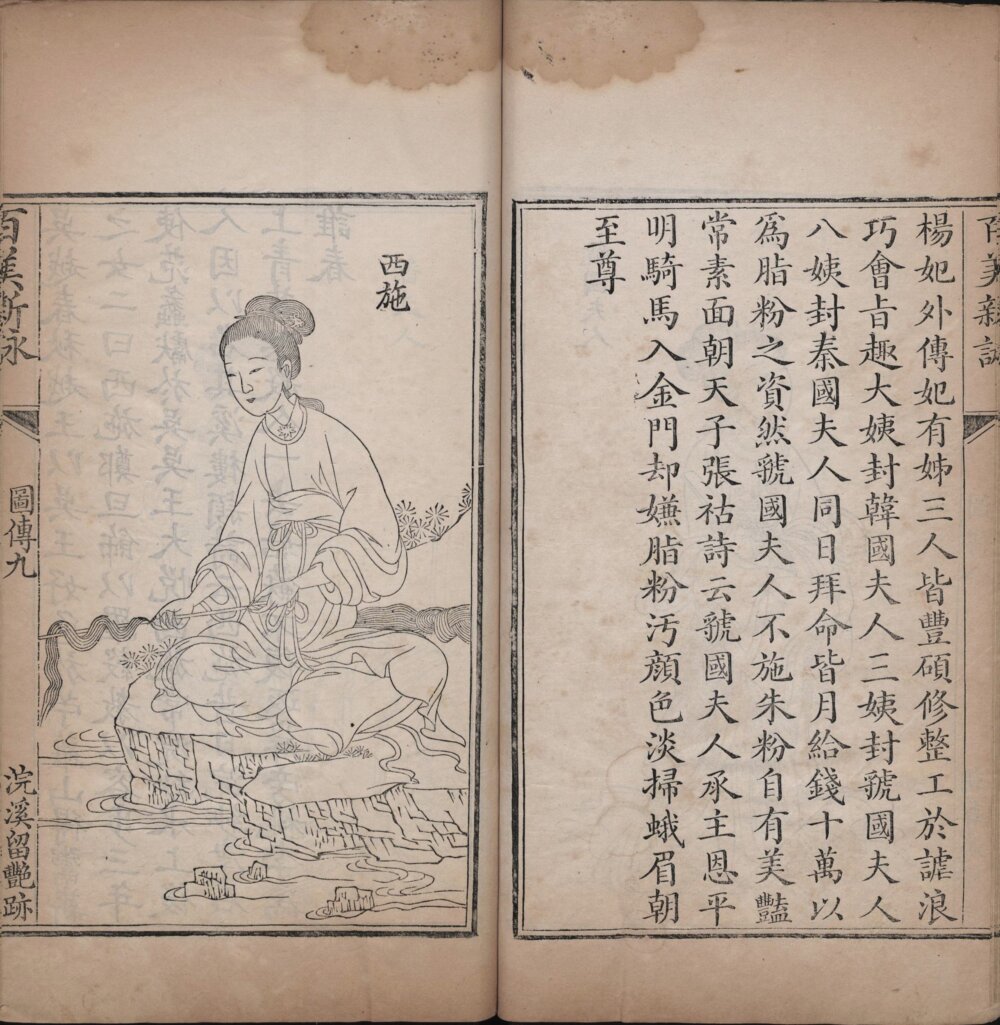 百美新詠
楊妃外傳妃有姊三人皆豐碩修整工於謔浪
巧會旨趣大姨封韓國夫人三姨封虢國夫人
八姨封秦國夫人同日拜命皆月給錢十萬以
爲脂粉之資然虢國夫人不施朱粉自有美豔
常素面朝天子張祜詩云虢國夫人承主恩平
明騎馬入金門却嫌脂粉汚顔色淡掃蛾眉朝
至尊
西施
百美新詠
圖傳九
浣溪留艷跡